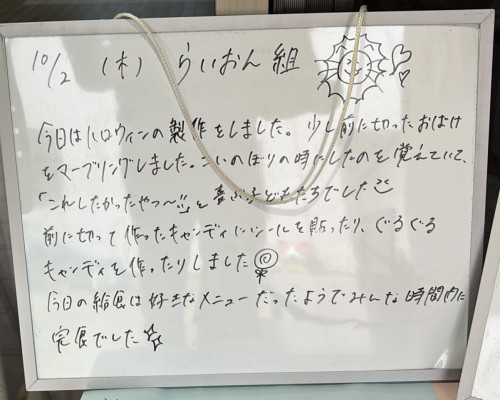 10/2 (木) らいおん組
今日はハロウィンの製作をしました。少し前に切ったおばけ
をマーブリングしました。こいのぼりの時にしたのを覚えていて、
「これしたかったやつ〜!!」と喜ぶ子どもたちでした
前に切って作ったキャンディにシールを貼ったり、ぐるぐる
キャンディを作ったりしました
今日の給食は好きなメニューだったようでみんな時間内に
完食でした